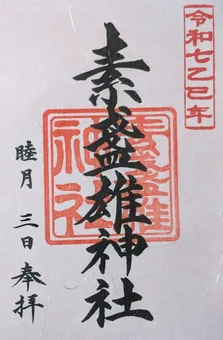 令和七乙巳年
素盞雄神社
睦月三日奉拝
素盞雄神社